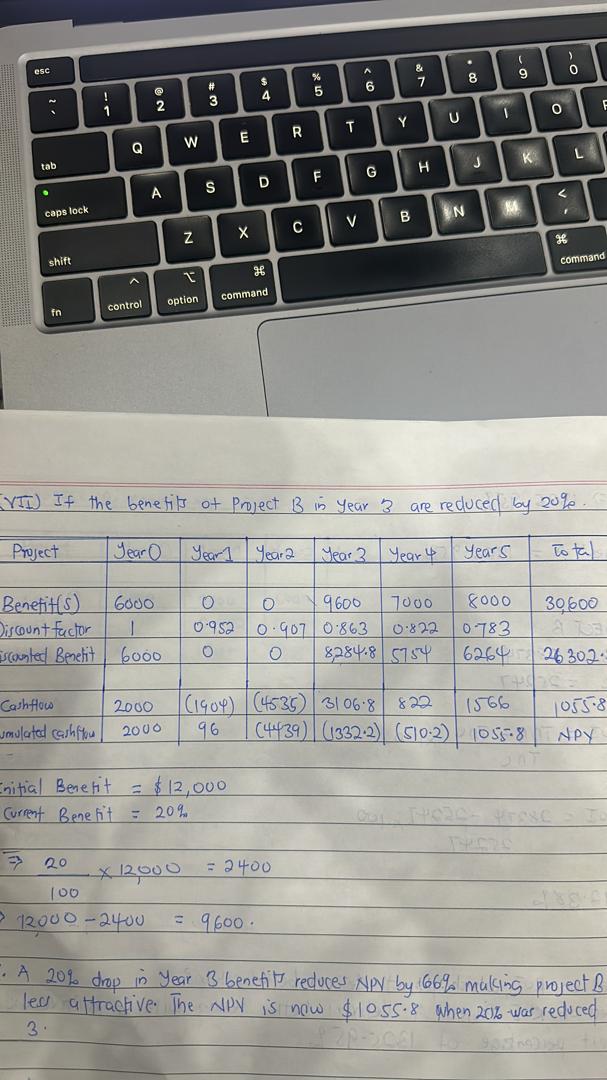 esc
~ ` ! 1 @ 2 # 3 $ 4 % 5 ^ 6 & 7 * 8 ( 9 ) 0
tab Q W E R T Y U I O P
caps lock A S D F G H J K L
shift Z X C V B N M < ,
fn ^ control ⌥ option ⌘ command ⌘ command
(VII) If the benefits of Project B in Year 3 are reduced by 20%.
Project Year 0 Year 1 Year 2 Year 3 Year 4 Year 5 Total
Benefit(s) 6000 0 0 9600 7000 8000 30,600
Discount factor 1 0.952 0.907 0.863 0.822 0.783
iscounted Benefit 6000 0 0 8,284.8 5754 6264 26302.
Cashflow 2000 (1904) (4535) 3106.8 822 1566 1055.8
umulated cashflow 2000 96 (4439) (1332.2) (510.2) 1055.8 NPV
Initial Benefit = $12,000
Current Benefit = 20%
⇒ 20/100 × 12,000 = 2400
12,000 - 2400 = 9600.
. A 20% drop in Year 3 benefits reduces NPV by 66% making project B
less attractive. The NPV is now $1055.8 when 20% was reduced
3.